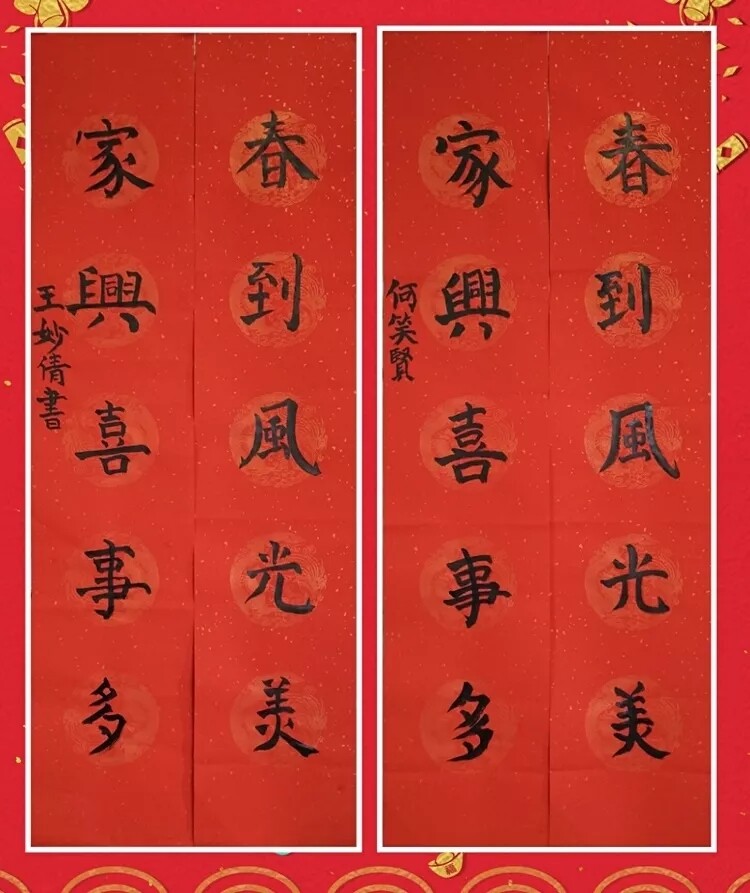 春到風光美
家興喜事多
王妙倩書
春到風光美
家興喜事多
何笑賢